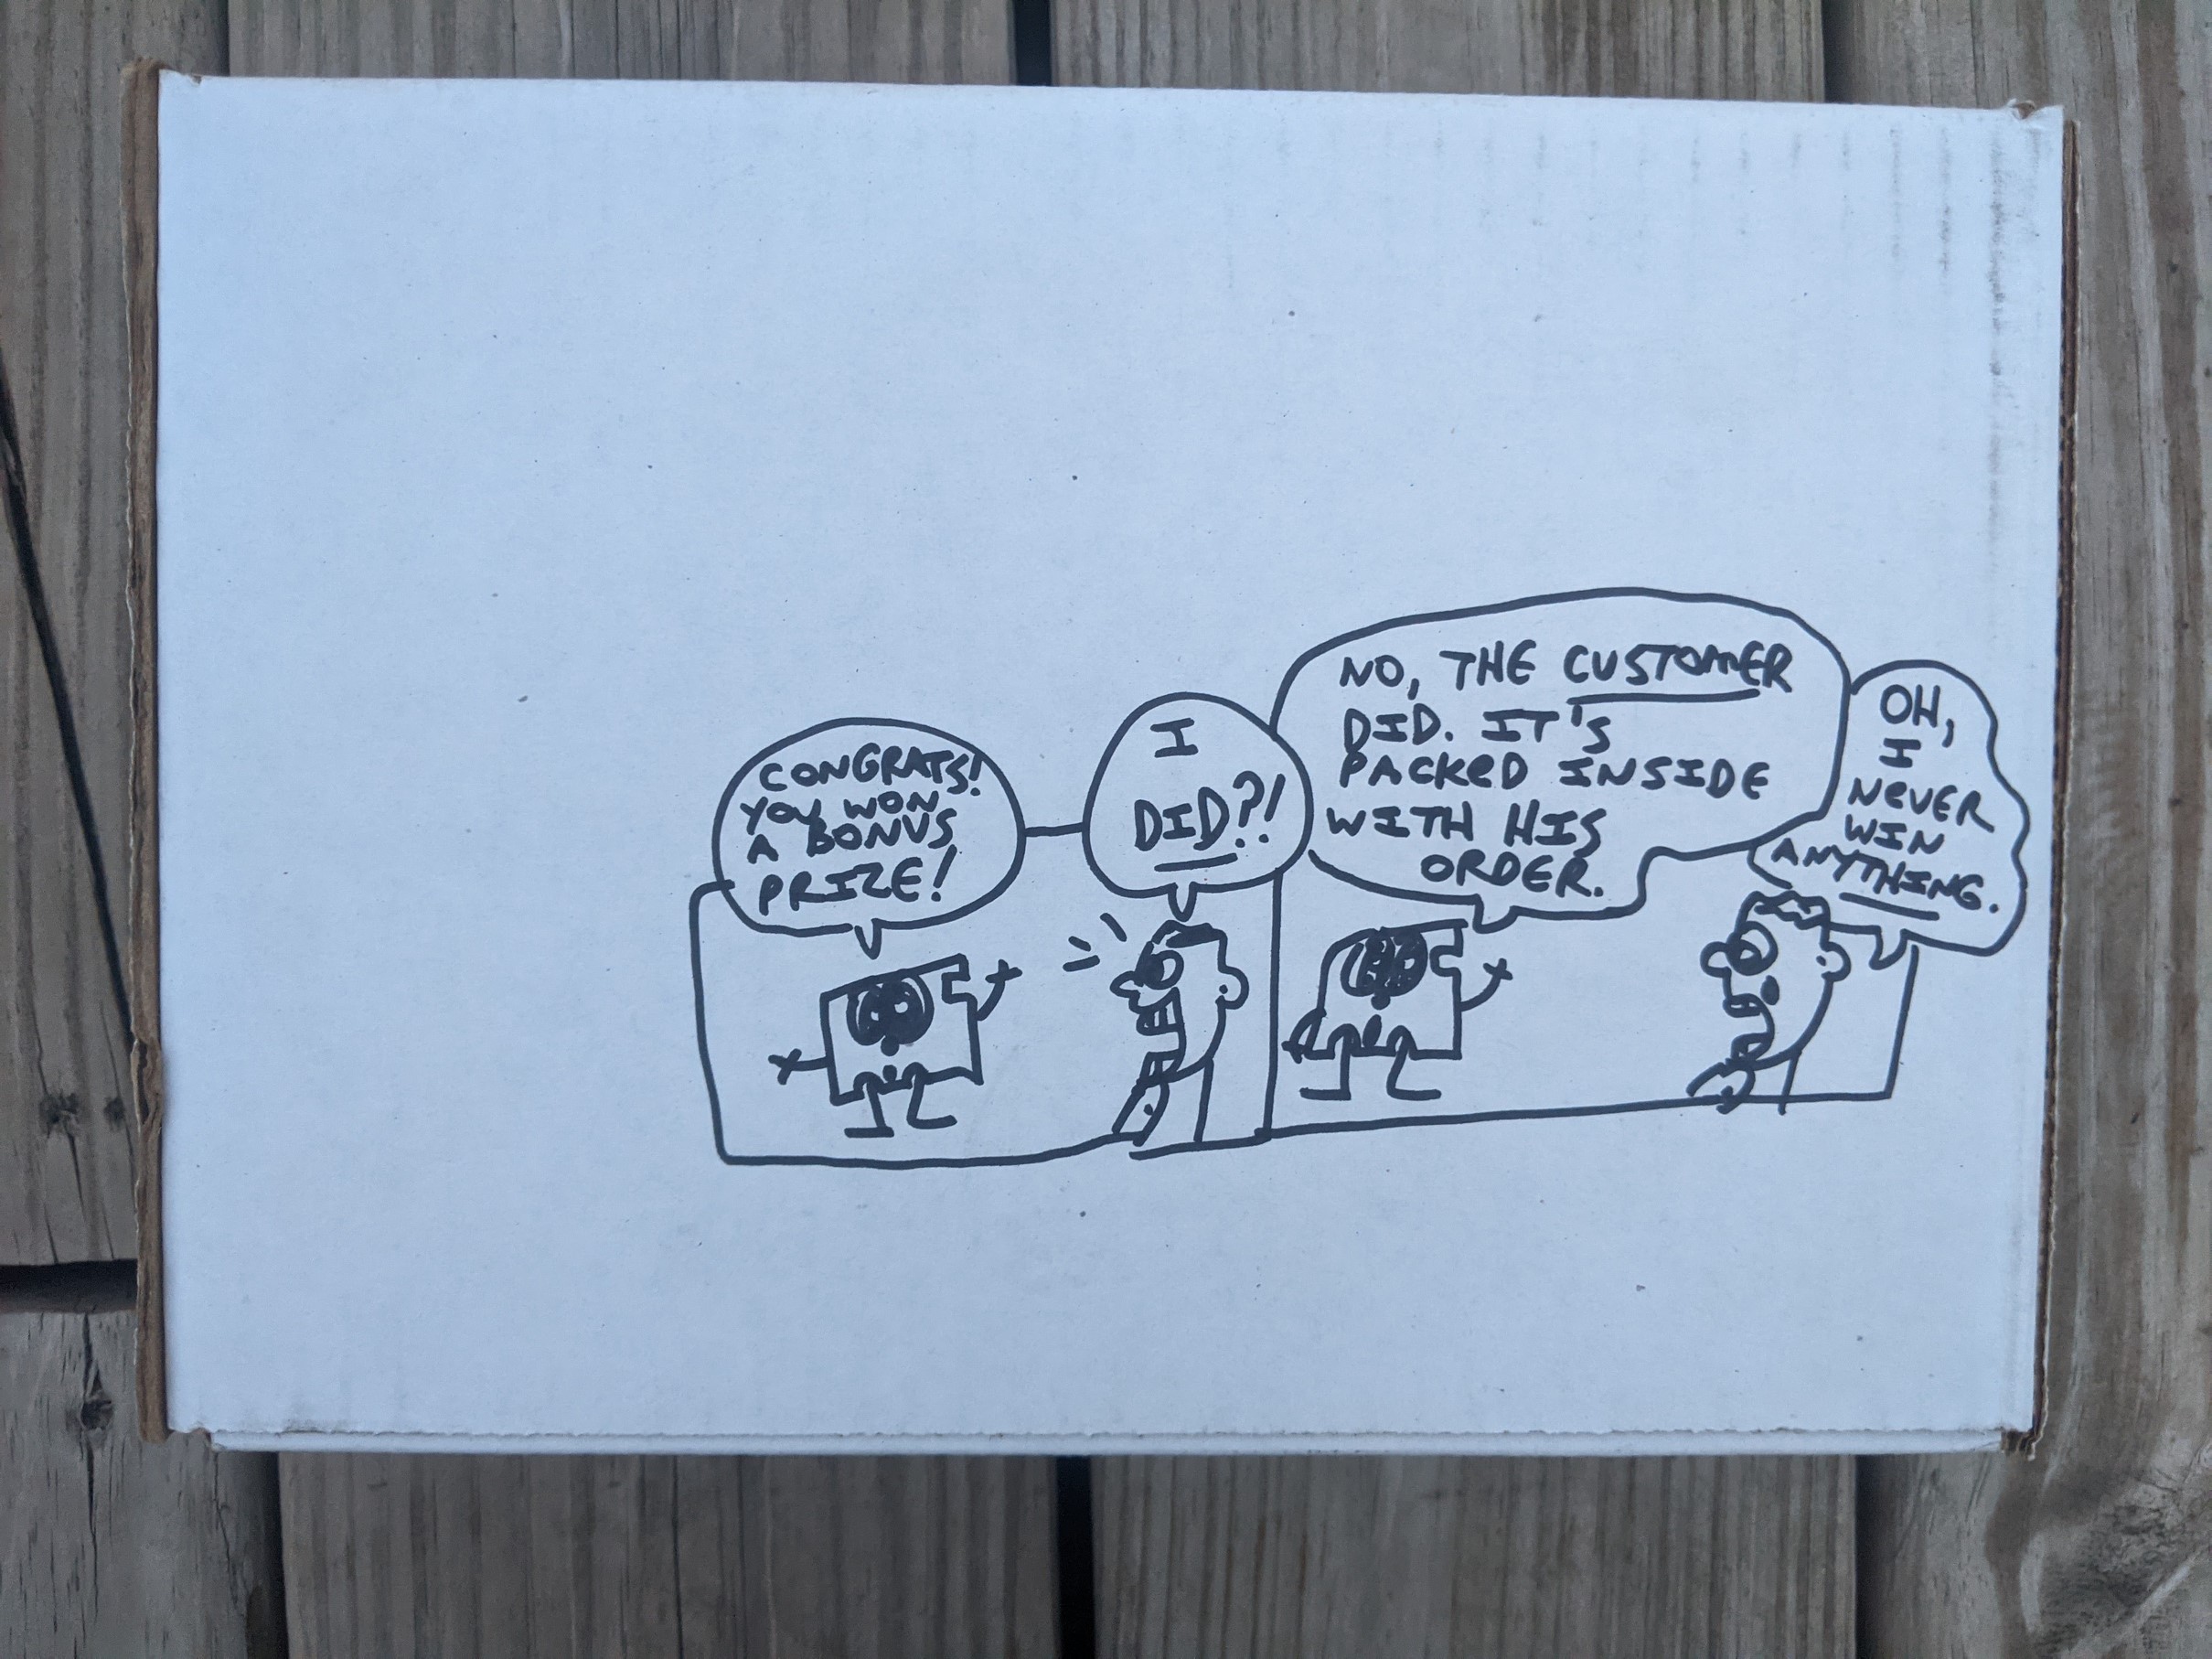 CONGRATS!
YOU WON
A BONUS
PRIZE!
I
DID?!
NO, THE CUSTOMER
DID. IT'S
PACKED INSIDE
WITH HIS
ORDER.
OH,
I
NEVER
WIN
ANYTHING.